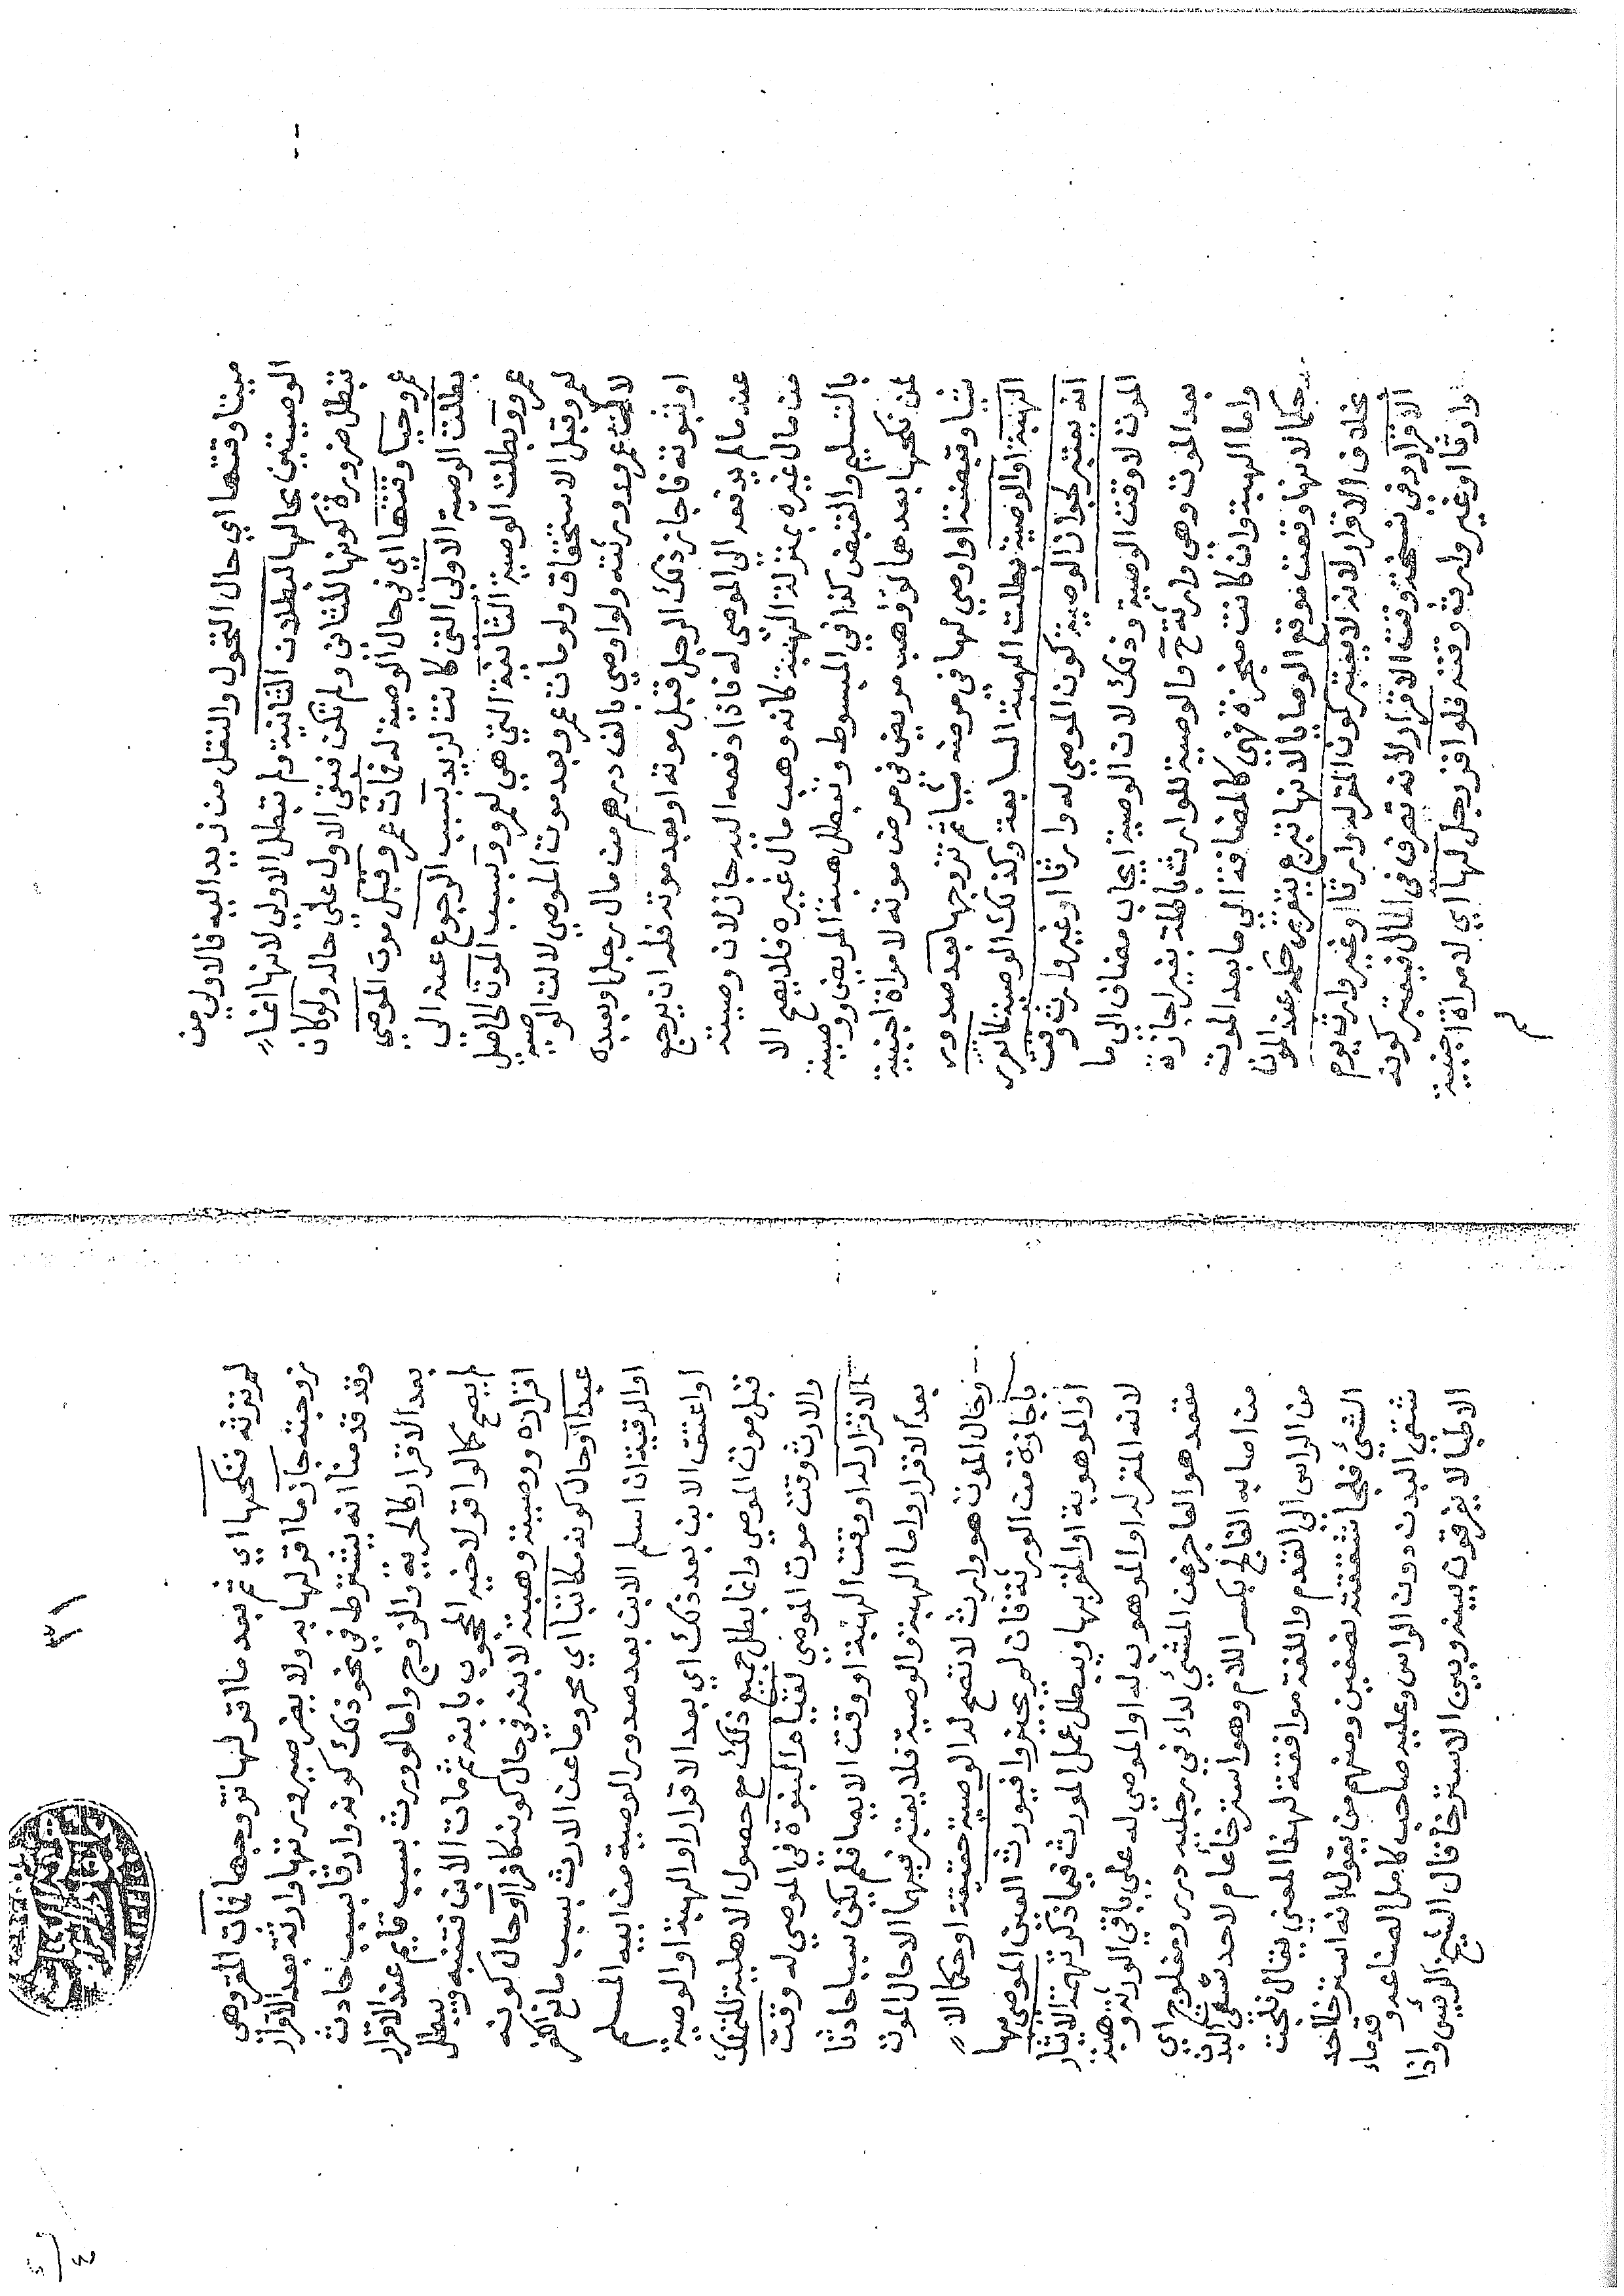 ميتا وقتها اي حال التحول والنقل من زيد اليه فالاولي من
الوصيتين بحالها لبطلان الثانية ولم تبطل الاولي لانها انما
تبطل ضرورة كونها للثاني ولم تكن فتبقى الاولى علي حاله ولو كان
عمرو حيا وقتها اي في حال الوصية له فمات عمرو قبل موت الموصي
بطلت الوصية الاولى التي كانت لزيد بسبب الرجوع عنه الى
عمرو وبطلت الوصية الثانية التي هي لعمرو بسبب الموت الحاصل
لعمرو قبل الاستحقاق ولو مات عمرو بعد موت الموصي لا لت الوصية
لا لمت عمرو وورثته ولو اوصي بالف درهم من مال رجل او بعبده
او بثوبه فاجاز ذلك الرجل قبل موته او بعد موته فله ان يرجع
عنه ما لم يدفعه الى الموصى له فاذا دفعه اليه جاز لان وصيته
من مال غيره بمنزلة الهبة كانه وهب مال غيره فلا يصح الا
بالتسليم والقبض كذا في المبسوط وتبطل هبة المريض ووصيته
لمن نكحها بعدهما لو وهب مريض في مرض موته لامراة اجنبية
شيا وقبضته او اوصي لها في مرضه شيا ثم تزوجها بعد صدور
الهبة او الوصية بطلت الهبة السابعة وكذلك الوصية لما تقرر
انه يعتبر لجواز الوصية كون الموصي له وارثا او غير وارث وقت
الموت لا وقت الوصية وذلك لان الوصية ايجاب مضاف الى ما
بعد الموت وهي وارثة ح والوصية للوارث باطلة بغير اجازة
واما الهبة وان كانت منجزة فهي كالمضافة الي ما بعد الموت
حكما لانها وقعت موقع الوصايا لانها تبرع يتقرر حكمه عند الموت
بخلاف الاقرار لانه لا يعتبر كون المقر له وارثا او غير وارث يوم
الاقرار وفي نسخة وقت الاقرار لانه تصرف في الحال فيعتبر كونه
وارثا او غير وارث وقته فلو اقر رجل لها اي لامراة اجنبية
لم ترثه فنكحها اي ثم بعد ما اقر لها تزوجها فمات المقر وهي
زوجته جاز ما اقر لها به ولا يضر صيرورتها وارثة بعد الاقرار
وقد قدمنا انه يشترط في نحو ذلك كونه وارثا بسبب حادث
بعد الاقرار كالحرية والزوج واما لو ورث بسبب قايم عند الاقرار
لم يصح كما لو اقر لاخيه المحجوب بابنه ثم مات الابن فتنبه ويبطل
اقراره ووصيته وهبته لابنه في حال كونه كافرا او حال كونه
عبدا او حال كونه مكاتبا اي محروما عن الارث بسبب مانع الكفر
او الرقية ان اسلم الابن بعد صدور الوصية من ابيه المسلم
او اعتق الابن بعد ذلك اي بعد الاقرار او الهبة او الوصية
قبل موت الموصي وانما بطل جميع ذلك مع حصول الاهلية للتملك
والارث وقت موت الموصي لقيام البنوة في الموصي له وقت
الاقرار له او وقت الهبة او وقت الايصا فلم يكن سببا حادثا
بعد الاقرار واما الهبة والوصية فلا يعتبر فيهما الا حال الموت
وحال الموت هو وارث لا تصح له الوصية حقيقة او حكما الا
باجازة من الورثة فان لم يجيزوا فيورث العين الموصى بها
او الموهوبة او المقر بها ويبطل عمل المورث فيما ذكر تهمة الايثار
لانه المقر له او الموهوب له او الموصي له علي باقي الورثة وهبة
مقعد هو العاجز عن المشي لداء في رجليه درر ومفلوج اي
من اصابه الفالج بكسر اللام وهو استرخاء عام لاحد شقي البدن
من الراس الى القدم واللغة موافقة لهذا المعني يقال فلجت
الشئ فلجا شققته نصفين ومنهم من يقول انه استرخا احد
شقي البدن دون الراس وعليه صاحب كامل الصناعه وقدماء
الاطبا لا يفرقون بينه وبين الاسترخا قال الشيخ الرئيس واذا